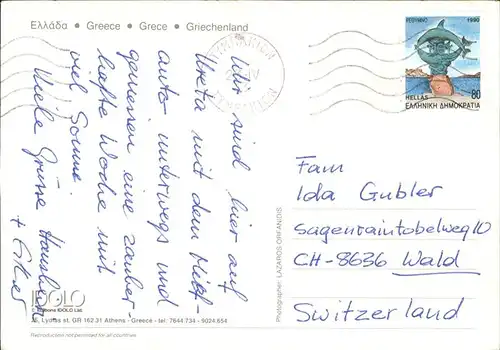 Ελλάδα • Greece • Grece • Griechenland
Wir sind hier auf
Kreta mit dem Miet-
auto unterwegs und
geniessen eine zauber-
hafte Woche mit
viel Sonne.
Viele Grüsse
+
ΡΕΘΥΜΝΟ 1990
HELLAS 80
ΕΛΛΗΝΙΚΗ ΔΗΜΟΚΡΑΤΙΑ
Fam
Ida Gubler
Sagenraintobelweg 10
CH-8636 Wald
Switzerland
Photographer: LAZAROS ORFANIDIS
IDOLO
Editions IDOLO Ltd.
Lydias st. GR 162 31 Athens - Greece - tel: 7644.734 - 9024.654
Reproduction not permissed for all countries